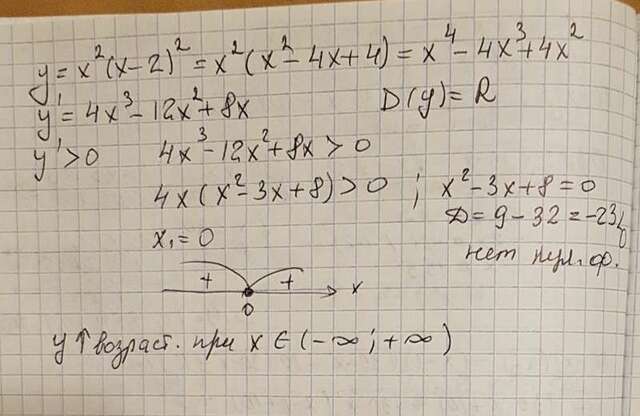 y = x²(x-2)² = x²(x²-4x+4) = x⁴-4x³+4x²
y' = 4x³-12x²+8x D(y)=R
y'>0 4x³-12x²+8x>0
4x(x²-3x+8)>0 ; x²-3x+8=0
x₁=0 D=9-32=-23<0
нет нул. ф.
+ + x
0
y↑ возраст. при x∈(-∞;+∞)